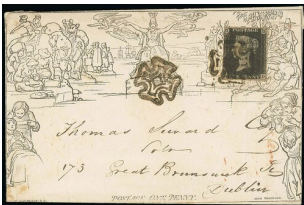 POSTAGE
Thomas Seward Esq
Solr
173 Great Brunswick St
Dublin
POSTAGE ONE PENNY.